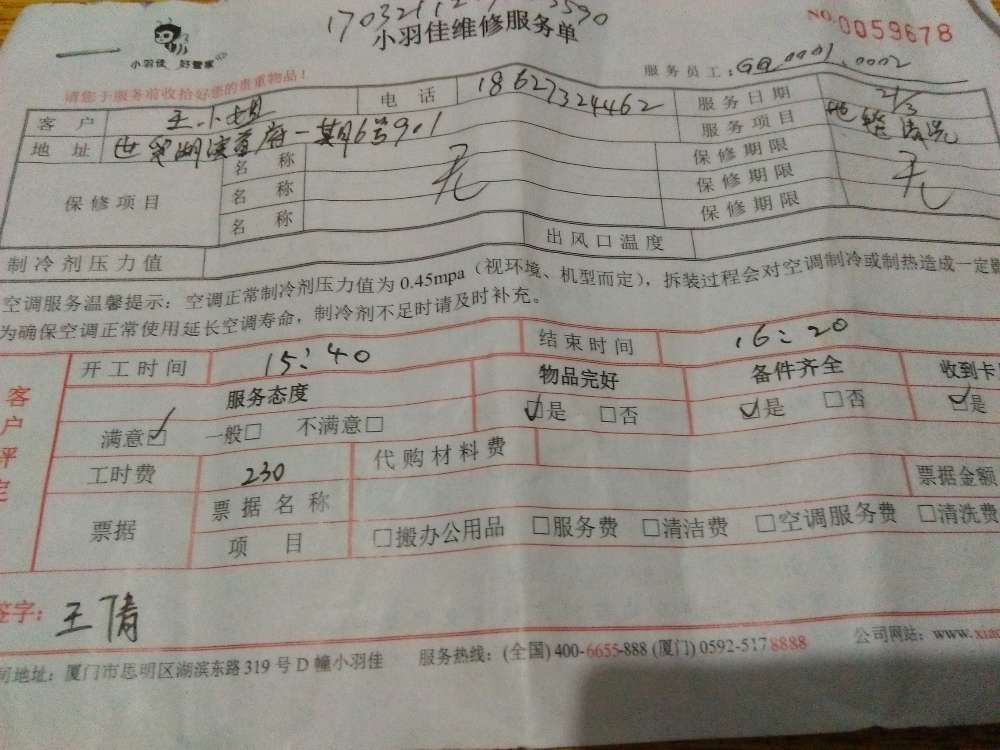 小羽佳 好管家
小羽佳维修服务单
NO.0059678
请您于服务前收拾好您的贵重物品!
服务员工: GQ0001.0002
客户 王小姐 电话 18627324462 服务日期 21/3
地址 世贸湖滨首府一期6号901 服务项目 地毯清洗
保修项目 名称 无 保修期限 无
名称 保修期限
名称 保修期限
制冷剂压力值 出风口温度
空调服务温馨提示: 空调正常制冷剂压力值为 0.45mpa (视环境、机型而定), 拆装过程会对空调制冷或制热造成一定
为确保空调正常使用延长空调寿命, 制冷剂不足时请及时补充。
客户评定
开工时间 15:40 结束时间 16:20
服务态度 物品完好 备件齐全 收到卡
满意☑ 一般□ 不满意□ ☑是 □否 ☑是 □否 ☑是
工时费 230 代购材料费
票据 票据名称 票据金额
项目 □搬办公用品 □服务费 □清洁费 □空调服务费 □清洗费
签字: 王倩
司地址: 厦门市思明区湖滨东路 319 号 D 幢小羽佳 服务热线: (全国) 400-6655-888 (厦门) 0592-5178888 公司网站: www.xia